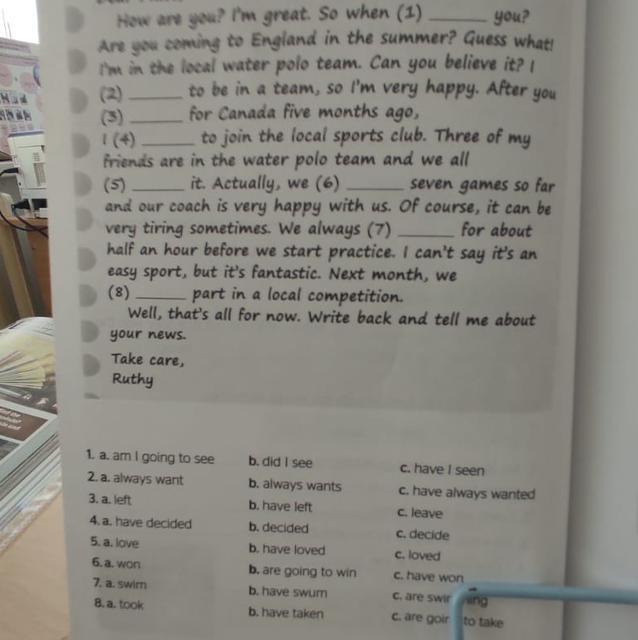 How are you? I'm great. So when (1) ______ you?
Are you coming to England in the summer? Guess what!
I'm in the local water polo team. Can you believe it? I
(2) ______ to be in a team, so I'm very happy. After you
(3) ______ for Canada five months ago,
I (4) ______ to join the local sports club. Three of my
friends are in the water polo team and we all
(5) ______ it. Actually, we (6) ______ seven games so far
and our coach is very happy with us. Of course, it can be
very tiring sometimes. We always (7) ______ for about
half an hour before we start practice. I can't say it's an
easy sport, but it's fantastic. Next month, we
(8) ______ part in a local competition.
Well, that's all for now. Write back and tell me about
your news.
Take care,
Ruthy
1. a. am I going to see b. did I see c. have I seen
2. a. always want b. always wants c. have always wanted
3. a. left b. have left c. leave
4. a. have decided b. decided c. decide
5. a. love b. have loved c. loved
6. a. won b. are going to win c. have won
7. a. swim b. have swum c. are
8. a. took b. have taken c. are to take